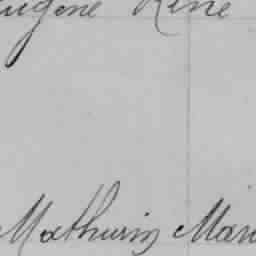 Eugène René
Mathurin Mari